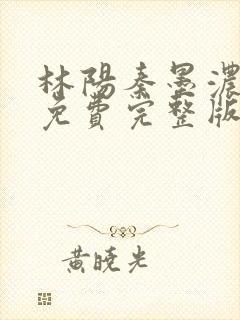 林陽秦墨濃
免費完整版
黃曉光